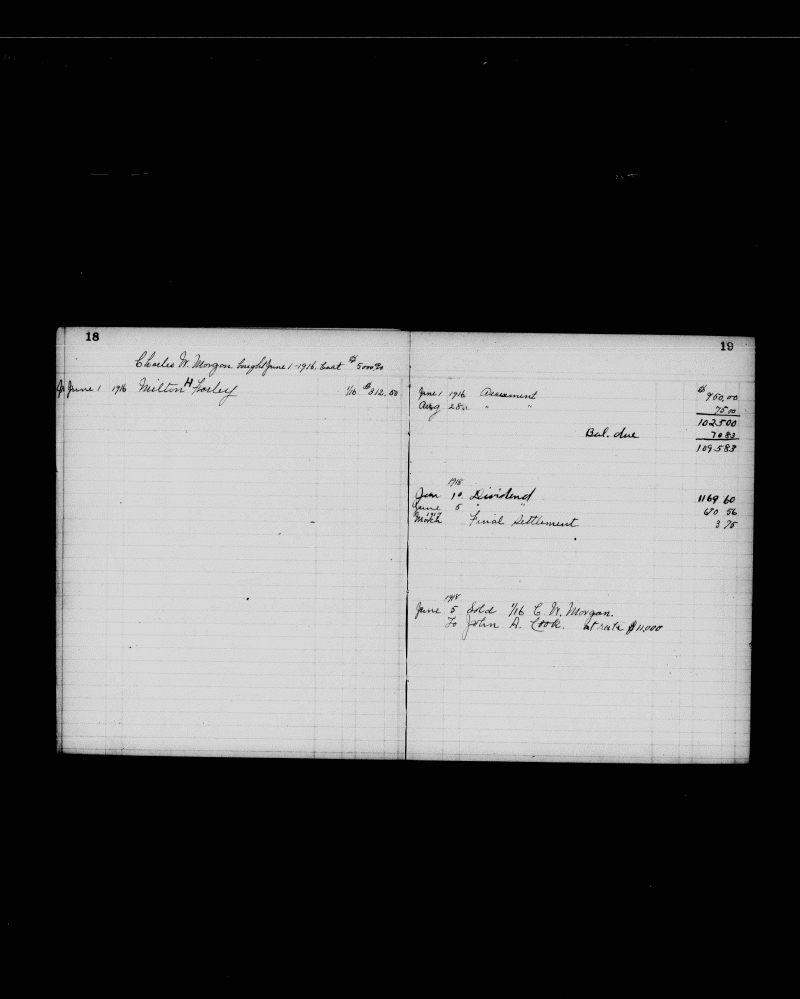 18
Charles W. Morgan bought June 1-1916. Cost $5000.00
June 1 1916 Milton H Forley 1/16 $312.50
19
June 1 1916 Assessment $950.00
Aug 28 " " 75 00
1025 00
Bal. due 70 83
1095 83
1918
Jan 10 Dividend 1169 60
June 5 " " 670 56
1919
March Final Settlement 3 75
1918
June 5 Sold 1/16 C. W. Morgan.
To John A. Cook. at rate $11,000